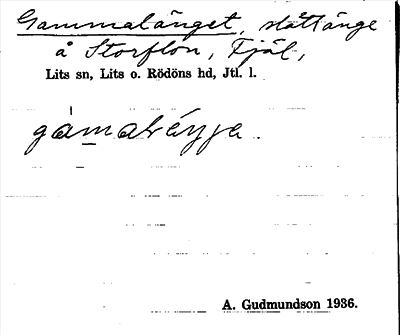 Gammalänget, slåttänge
å Storflon, Fjäl,
Lits sn, Lits o. Rödöns hd, Jtl. l.
A. Gudmundson 1936.